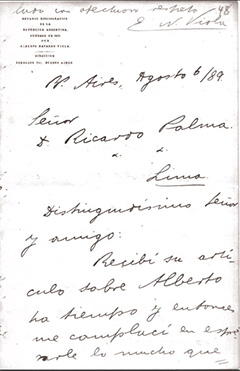 luda con afectuoso respeto 48
E. N. Viola
DE LA
REPÚBLICA ARGENTINA,
POR
ALBERTO NAVARRO VIOLA
DIRECCION
B. Aires, Agosto 6/89
Señor
D Ricardo Palma.
Lima
Distinguidísimo Señor
y amigo:
Recibí su artí-
culo sobre Alberto
ha tiempo y entonces
me complací en espre-
sarle lo mucho que